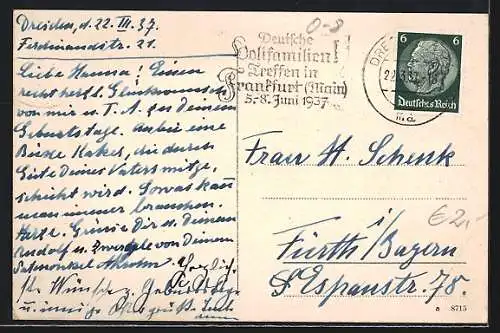 Dresden, d. 22. III. 37.
Ferdinandstr. 21.
Liebe Hanna! Einen
recht herzl. Glückwunsch
von mir u. T. A. zu Deinem
Geburtstage. Anbei eine
Büste Kakel, die durch
Güte Deines Vaters mitge-
schickt wird. Sowas kann
man immer brauchen.
Herzl. Grüsse Dir u. Deinem
Rudolf u. Zwergele von Deinem
Patenonkel
herzlich.
Wünsche z. Geburtstage
u. innige Ostergrüße
0-8
Deutsche
Volkfamilien
Treffen in
Frankfurt (Main)
5.-8. Juni 1937
DRE
6 6
Deutsches Reich
Frau H. Schenk
€2,-
i/
Fürth/Bayern
Espanstr. 78.
a 8715